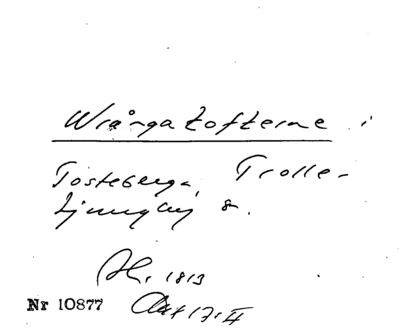 Wrånga tofterne i
Tosteberga, Trolle-
Ljungby s.
Sk. 1813
Nr 10877 Akt 17:II